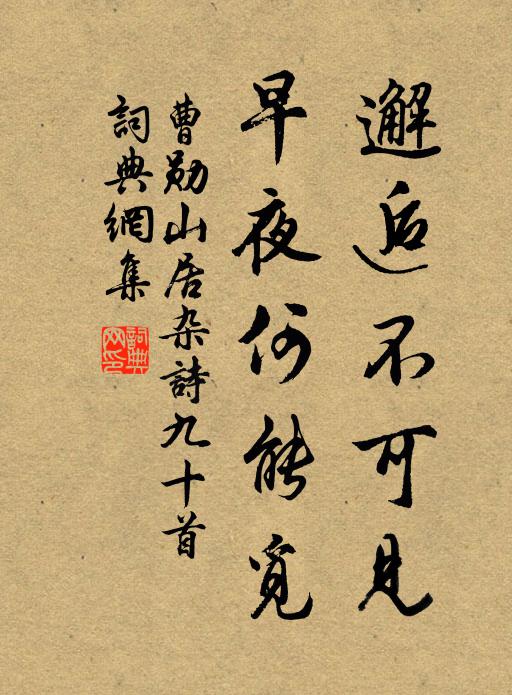 邂逅不可見
早夜何能覓
曹勛山居杂詩九十首
詞典網集
詞典网印